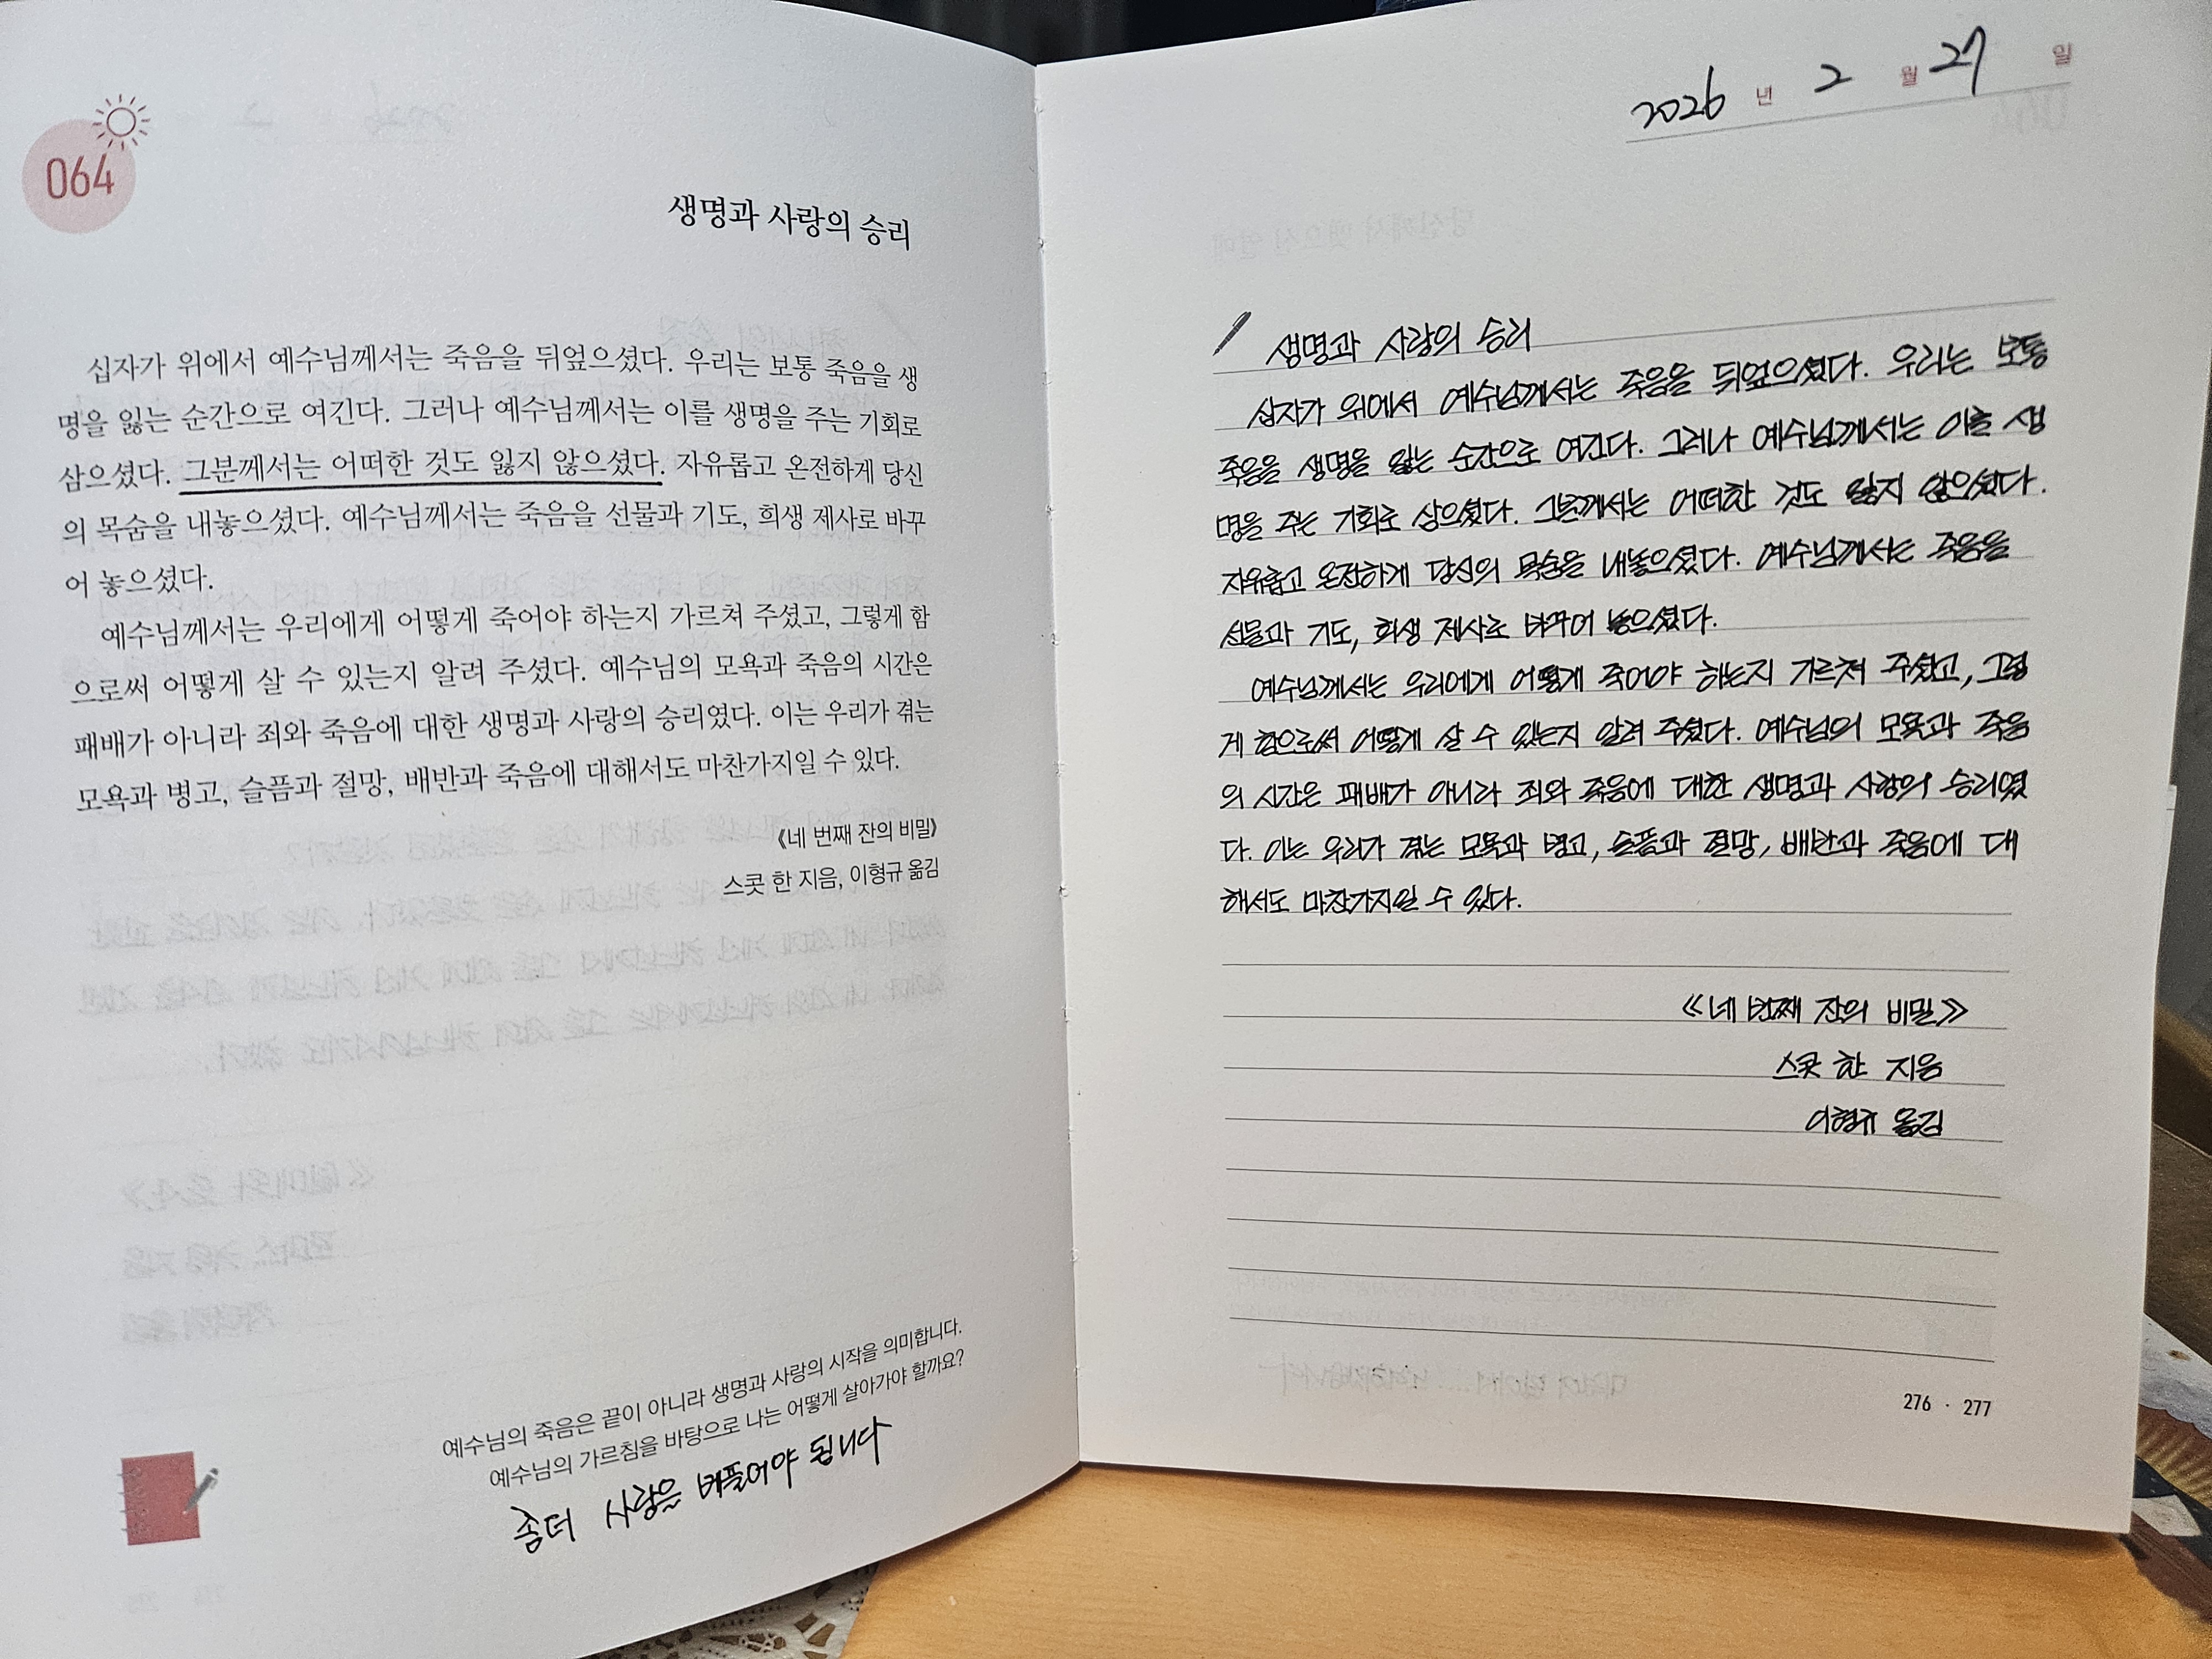 064
생명과 사랑의 승리
십자가 위에서 예수님께서는 죽음을 뒤엎으셨다. 우리는 보통 죽음을 생
명을 잃는 순간으로 여긴다. 그러나 예수님께서는 이를 생명을 주는 기회로
삼으셨다. 그분께서는 어떠한 것도 잃지 않으셨다. 자유롭고 온전하게 당신
의 목숨을 내놓으셨다. 예수님께서는 죽음을 선물과 기도, 희생 제사로 바꾸
어 놓으셨다.
예수님께서는 우리에게 어떻게 죽어야 하는지 가르쳐 주셨고, 그렇게 함
으로써 어떻게 살 수 있는지 알려 주셨다. 예수님의 모욕과 죽음의 시간은
패배가 아니라 죄와 죽음에 대한 생명과 사랑의 승리였다. 이는 우리가 겪는
모욕과 병고, 슬픔과 절망, 배반과 죽음에 대해서도 마찬가지일 수 있다.
《네 번째 잔의 비밀》
스콧 한 지음, 이형규 옮김
예수님의 죽음은 끝이 아니라 생명과 사랑의 시작을 의미합니다.
예수님의 가르침을 바탕으로 나는 어떻게 살아가야 할까요?
좀더 사랑을 베풀어야 됩니다
2026 년 2 월 27 일
생명과 사랑의 승리
십자가 위에서 예수님께서는 죽음을 뒤엎으셨다. 우리는 보통
죽음을 생명을 잃는 순간으로 여긴다. 그러나 예수님께서는 이를 생
명을 주는 기회로 삼으셨다. 그분께서는 어떠한 것도 잃지 않으셨다.
자유롭고 온전하게 당신의 목숨을 내놓으셨다. 예수님께서는 죽음을
선물과 기도, 희생 제사로 바꾸어 놓으셨다.
예수님께서는 우리에게 어떻게 죽어야 하는지 가르쳐 주셨고, 그렇
게 함으로써 어떻게 살 수 있는지 알려 주셨다. 예수님의 모욕과 죽음
의 시간은 패배가 아니라 죄와 죽음에 대한 생명과 사랑의 승리였
다. 이는 우리가 겪는 모욕과 병고, 슬픔과 절망, 배반과 죽음에 대
해서도 마찬가지일 수 있다.
《네 번째 잔의 비밀》
스콧 한 지음
이형규 옮김
276 · 277